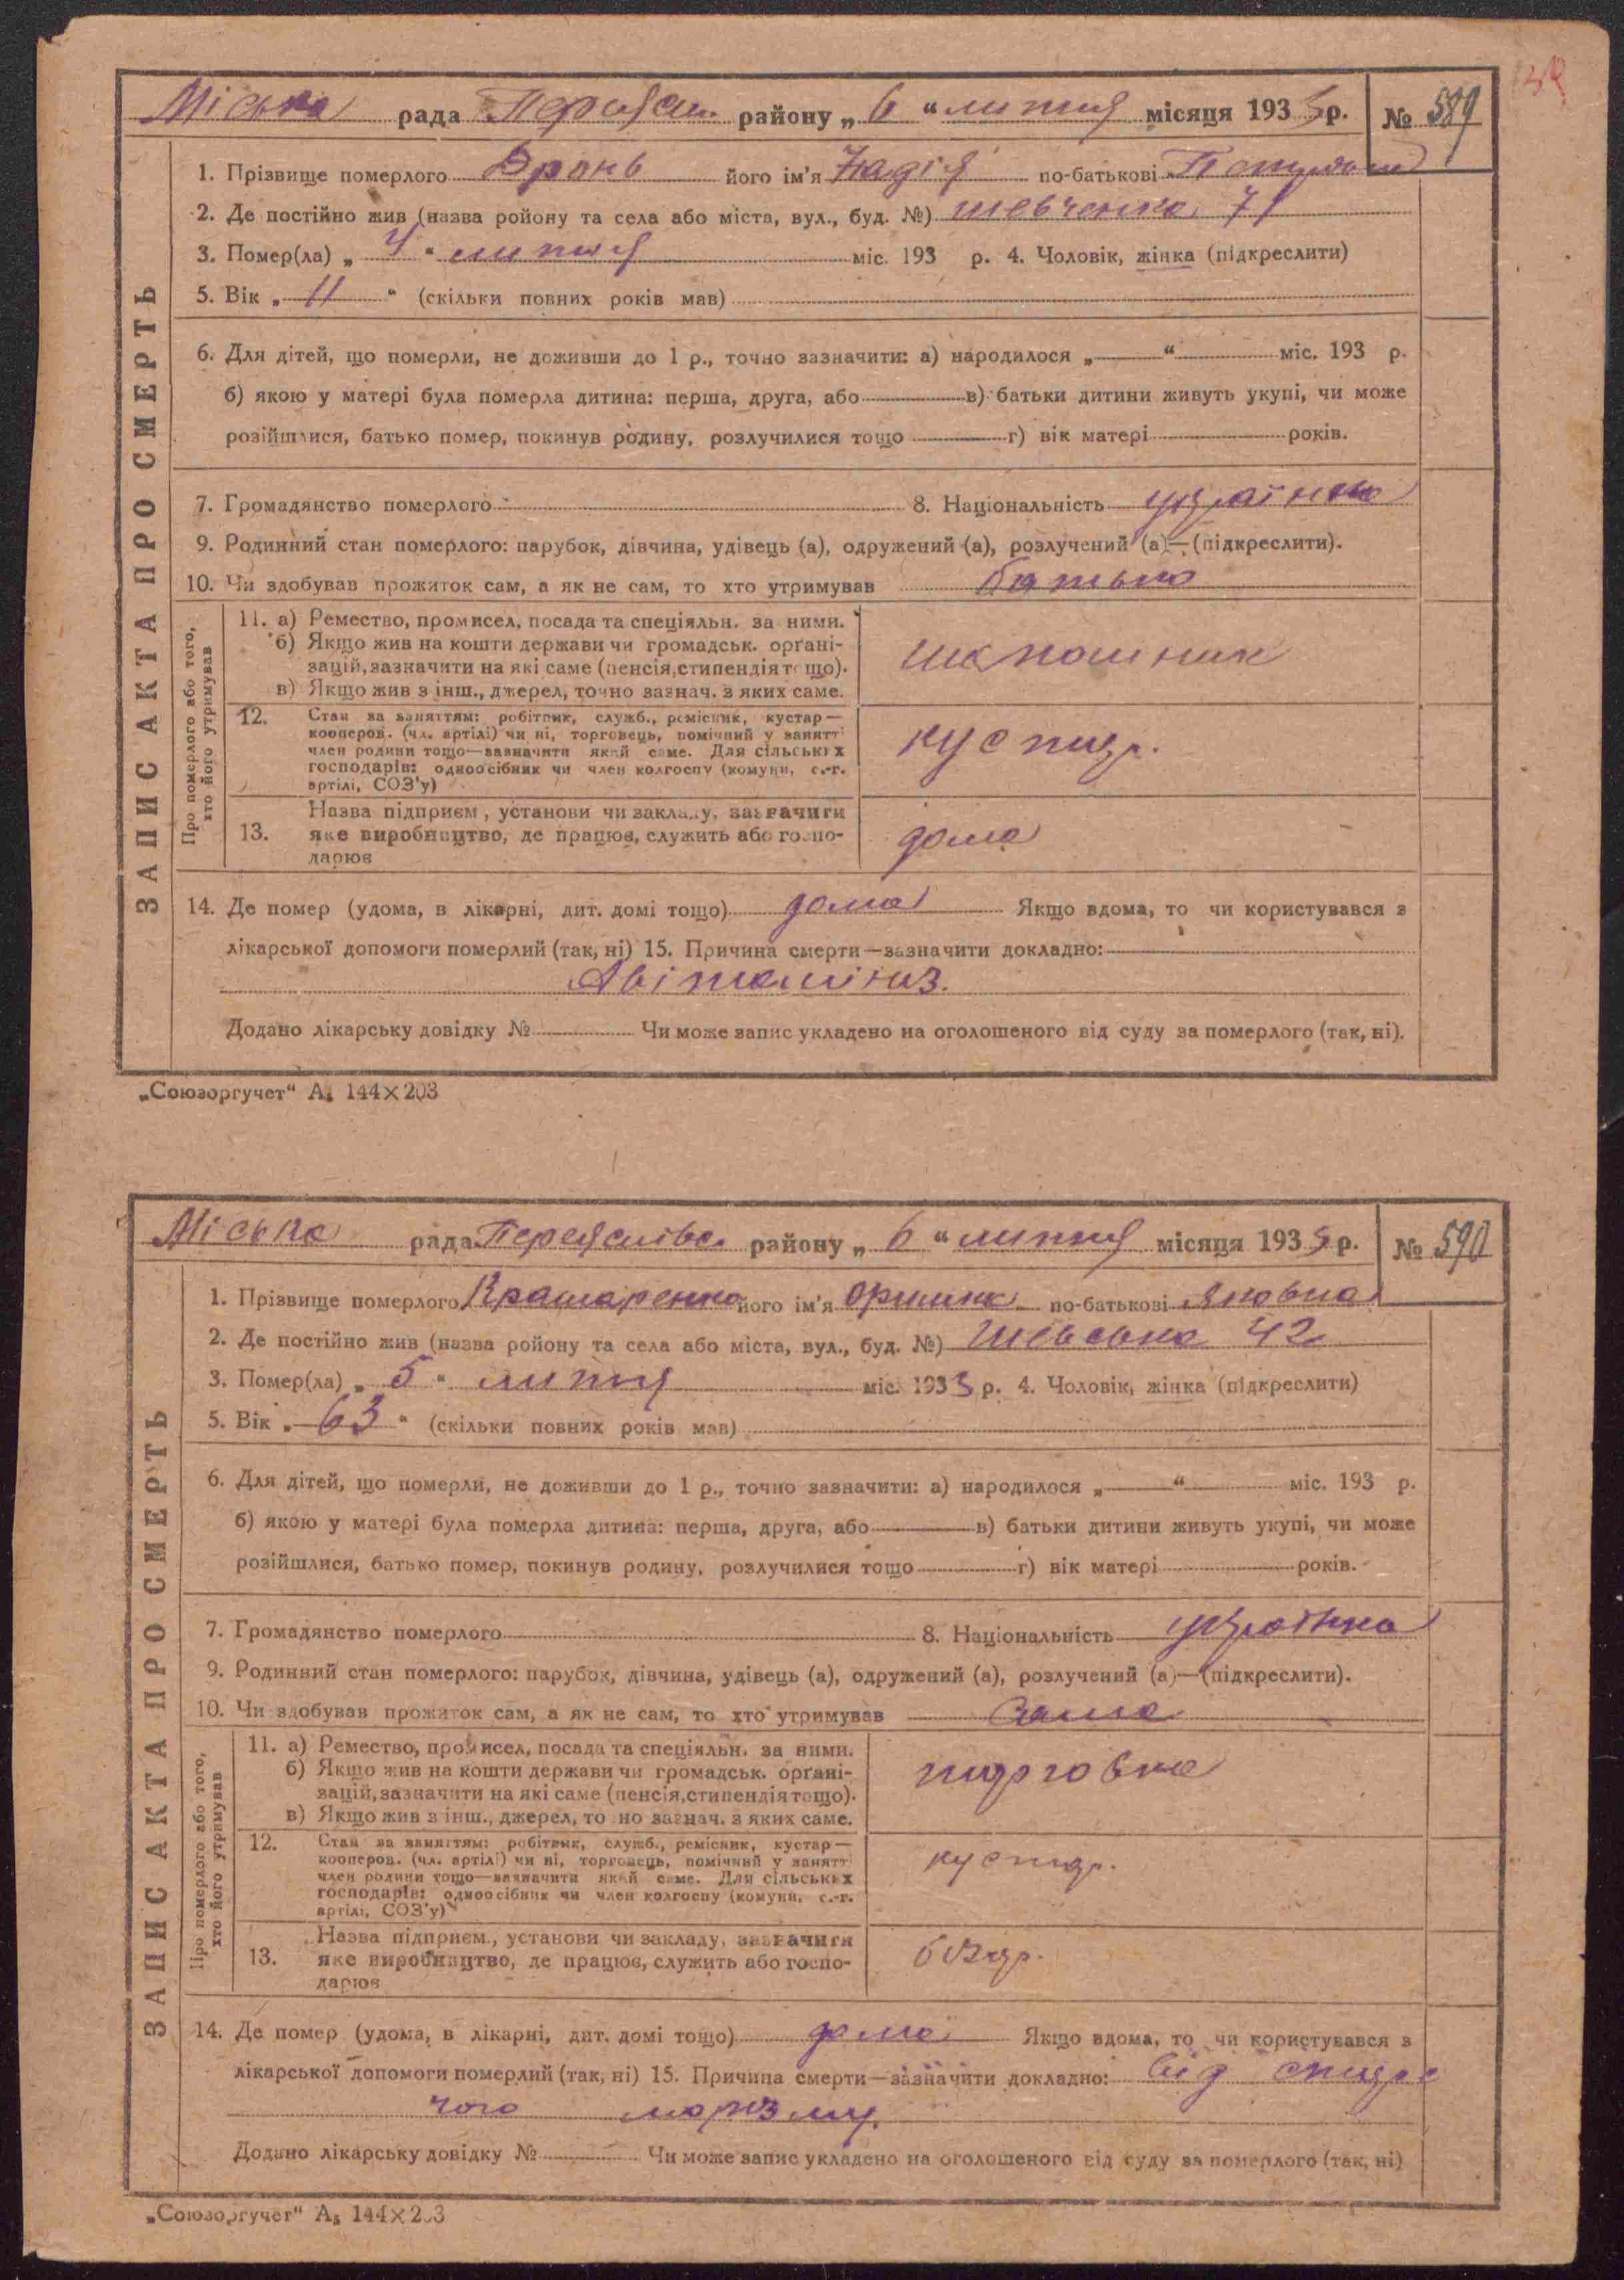 Міська рада Переяслі. району „ 6 “ липня місяця 1933 р. № 589
1. Прізвище померлого Дронь його ім'я Надія по-батькові
2. Де постійно жив (назва ройону та села або міста, вул., буд. №) Шевченка 71
3. Помер(ла) „ 4 “ липня міс. 193 р. 4. Чоловік, жінка (підкреслити)
5. Вік „ 11 “ (скільки повних років мав)
6. Для дітей, що померли, не доживши до 1 р., точно зазначити: а) народилося „ — “ міс. 193 р.
б) якою у матері була померла дитина: перша, друга, або — в) батьки дитини живуть укупі, чи може
розійшлися, батько помер, покинув родину, розлучилися тощо — г) вік матері — років.
7. Громадянство померлого 8. Національність українка
9. Родинний стан померлого: парубок, дівчина, удівець (а), одружений (а), розлучений (а)—(підкреслити).
10. Чи здобував прожиток сам, а як не сам, то хто утримував батько
ЗАПИС АКТА ПРО СМЕРТЬ
Про померлого або того, хто його утримував
11. а) Ремество, промисел, посада та спеціяльн. за ними.
б) Якщо жив на кошти держави чи громадськ. орґані-
зацій, зазначити на які саме (пенсія, стипендія тощо).
в) Якщо жив з інш., джерел, точно зазнач. з яких саме.
12. Стан за заняттям: робітник, служб., ремісник, кустар—
кооперов. (чл. артілі) чи ні, торговець, помічний у занятті
член родини тощо—зазначити який саме. Для сільських
господарів: одноосібник чи член колгоспу (комуни, с.-г.
артілі, СОЗ'у)
кустар.
Назва підприєм., установи чи закладу, зазначити
13. яке виробництво, де працює, служить або госпо-
дарює
дома
14. Де помер (удома, в лікарні, дит. домі тощо) дома Якщо вдома, то чи користувався з
лікарської допомоги померлий (так, ні) 15. Причина смерти—зазначити докладно:
Авітаміноз.
Додано лікарську довідку № Чи може запис укладено на оголошеного від суду за померлого (так, ні).
„Союзоргучет“ А₅ 144×203
Міська рада Переяслівс. району „ 6 “ липня місяця 1933 р. № 590
1. Прізвище померлого Крамаренко його ім'я Оришка по-батькові Яковна
2. Де постійно жив (назва ройону та села або міста, вул., буд. №) 42
3. Помер(ла) „ 5 “ липня міс. 1933 р. 4. Чоловік, жінка (підкреслити)
5. Вік „ 63 “ (скільки повних років мав)
6. Для дітей, що померли, не доживши до 1 р., точно зазначити: а) народилося „ — “ міс. 193 р.
б) якою у матері була померла дитина: перша, друга, або — в) батьки дитини живуть укупі, чи може
розійшлися, батько помер, покинув родину, розлучилися тощо — г) вік матері — років.
7. Громадянство померлого 8. Національність українка
9. Родинний стан померлого: парубок, дівчина, удівець (а), одружений (а), розлучений (а)—(підкреслити).
10. Чи здобував прожиток сам, а як не сам, то хто утримував сама
ЗАПИС АКТА ПРО СМЕРТЬ
Про померлого або того, хто його утримував
11. а) Ремество, промисел, посада та спеціяльн. за ними.
б) Якщо жив на кошти держави чи громадськ. орґані-
зацій, зазначити на які саме (пенсія, стипендія тощо).
в) Якщо жив з інш., джерел, точно зазнач. з яких саме.
торговка
12. Стан за заняттям: робітник, служб., ремісник, кустар—
кооперов. (чл. артілі) чи ні, торговець, помічний у занятті
член родини тощо—зазначити який саме. Для сільських
господарів: одноосібник чи член колгоспу (комуни, с.-г.
артілі, СОЗ'у)
кустар.
Назва підприєм., установи чи закладу, зазначити
13. яке виробництво, де працює, служить або госпо-
дарює
базар.
14. Де помер (удома, в лікарні, дит. домі тощо) дома Якщо вдома, то чи користувався з
лікарської допомоги померлий (так, ні) 15. Причина смерти—зазначити докладно: від старе
чого маразму.
Додано лікарську довідку № Чи може запис укладено на оголошеного від суду за померлого (так, ні)
„Союзоргучет“ А₅ 144×203